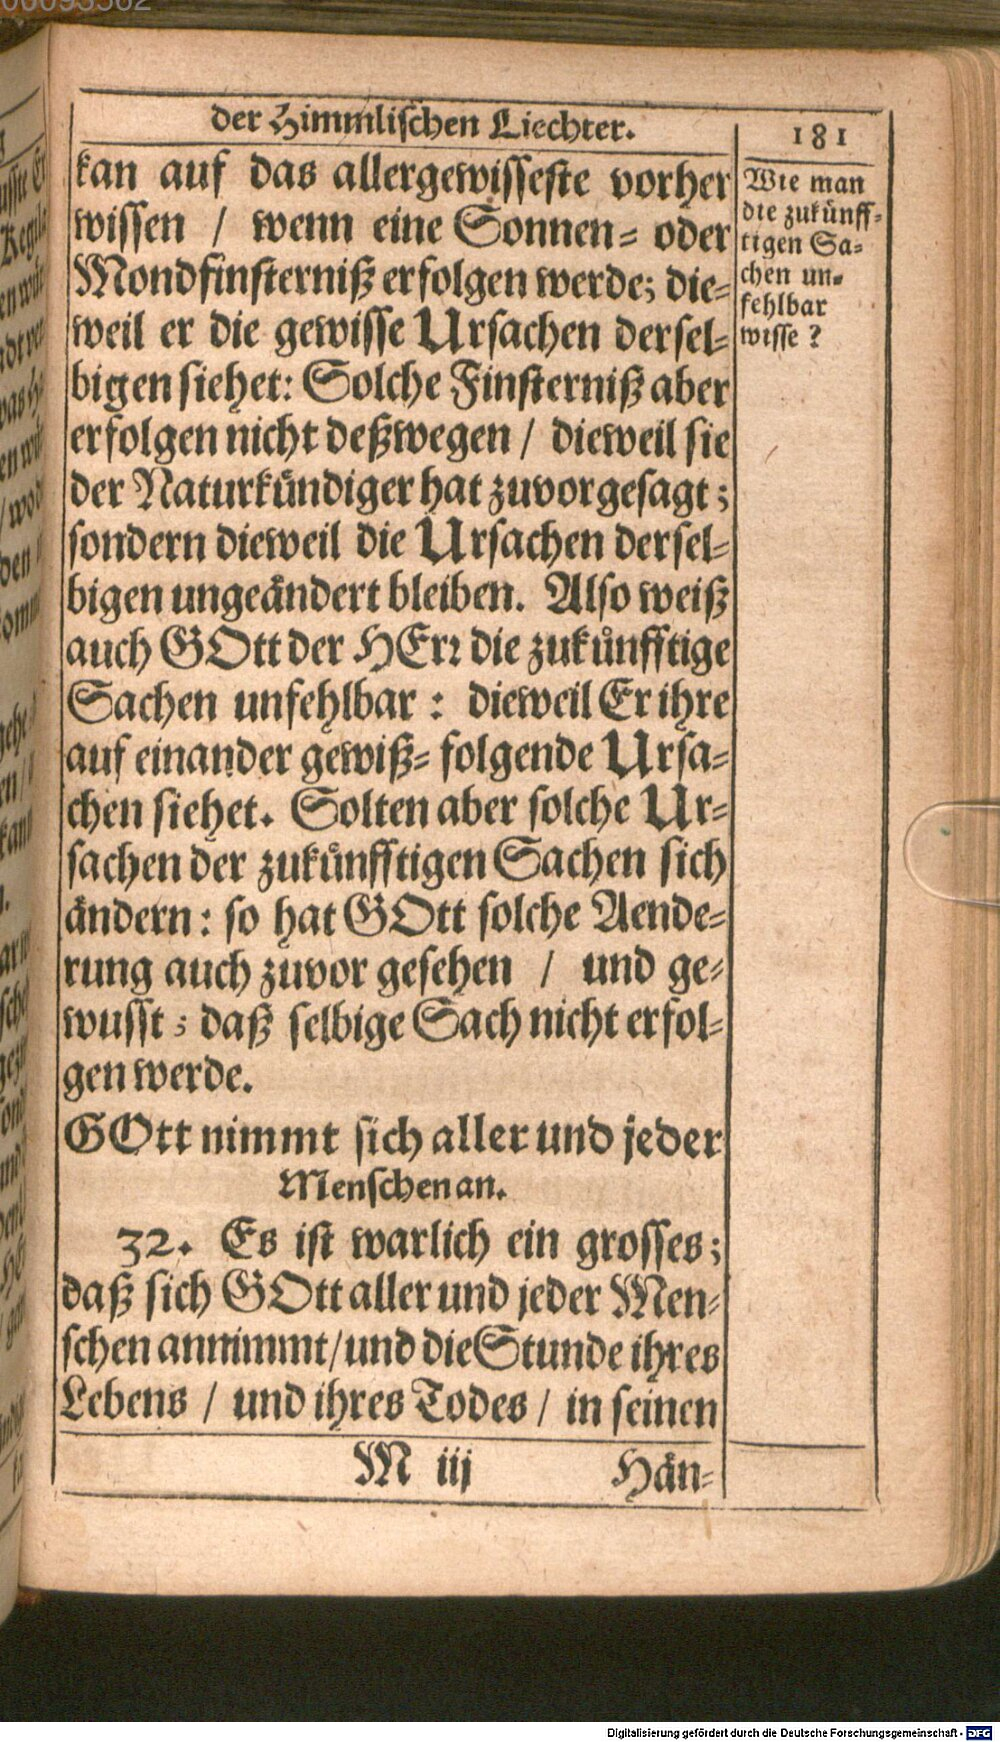 der Himmlischen Liechter.
181
kan auf das allergewisseste vorher
wissen / wenn eine Sonnen- oder
Mondfinsterniß erfolgen werde; die-
weil er die gewisse Ursachen dersel-
bigen siehet: Solche Finsterniß aber
erfolgen nicht deßwegen / dieweil sie
der Naturkündiger hat zuvorgesagt;
sondern dieweil die Ursachen dersel-
bigen ungeändert bleiben. Also weiß
auch GOtt der HErr die zukünfftige
Sachen unfehlbar: dieweil Er ihre
auf einander gewiß-folgende Ursa-
chen siehet. Solten aber solche Ur-
sachen der zukünfftigen Sachen sich
ändern: so hat GOtt solche Aende-
rung auch zuvor gesehen / und ge-
wusst; daß selbige Sach nicht erfol-
gen werde.
Wie man
die zukünff-
tigen Sa-
chen un-
fehlbar
wisse?
GOtt nimmt sich aller und jeder
Menschen an.
32. Es ist warlich ein grosses;
daß sich GOtt aller und jeder Men-
schen annimmt/und die Stunde ihres
Lebens / und ihres Todes / in seinen
M iij
Hän-
Digitalisierung gefördert durch die Deutsche Forschungsgemeinschaft - DFG